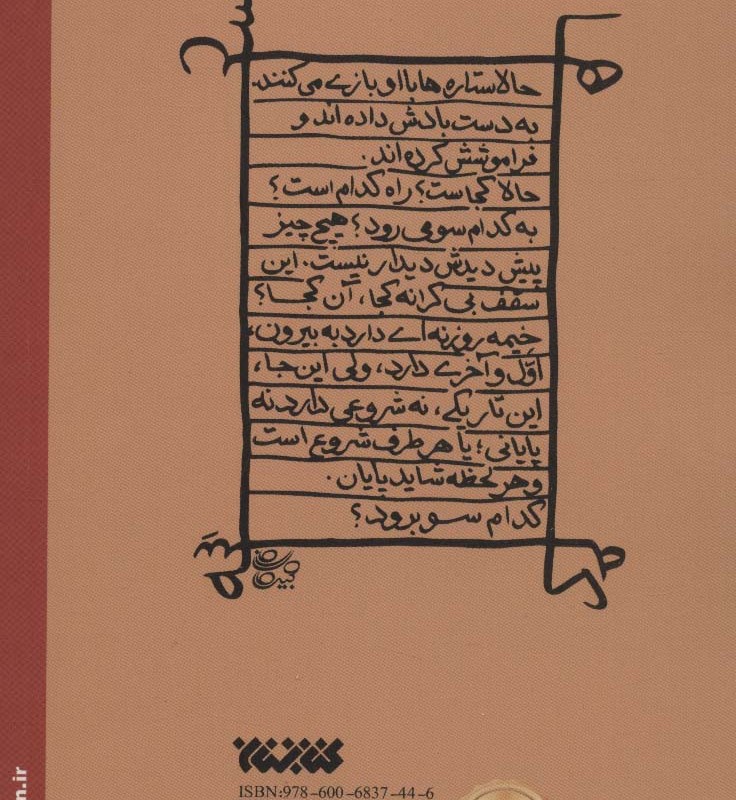 حالا ستاره ها با او بازی می کنند.
به دست بادش داده اند و
فراموشش کرده اند.
حالا کجاست؟ راه کدام است؟
به کدام سو می رود؟ هیچ چیز
پیش دیدش دیدار نیست. این
سقف بی کرانه کجا، آن کجا؟
خیمه روزنه ای دارد به بیرون،
اوّل و آخری دارد، ولی این جا،
این تاریکی، نه شروعی دارد نه
پایانی؛ یا هر طرف شروع است
و هر لحظه شاید پایان.
کدام سو برود؟
کتابستان
ISBN:978-600-6837-44-6
n.ir